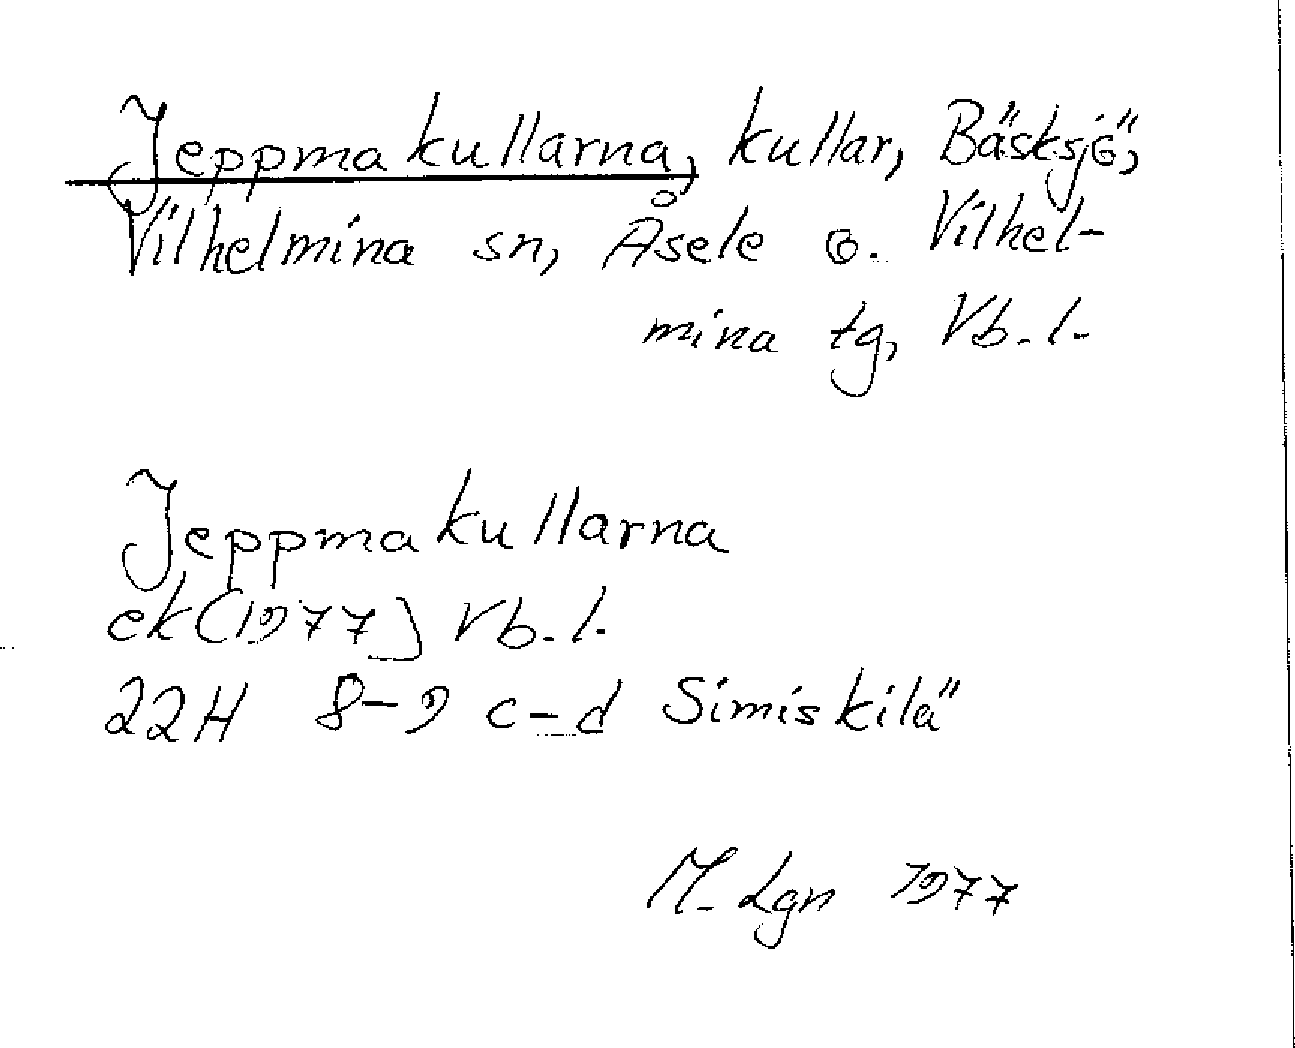 Jeppmakullarna, kullar, Bäsksjö,
Vilhelmina sn, Åsele o. Vilhel-
mina tg, Vb. l.
Jeppmakullarna
ek (1977) Vb. l.
22H 8-9 c-d Simiskilä
M. Lgn 1977